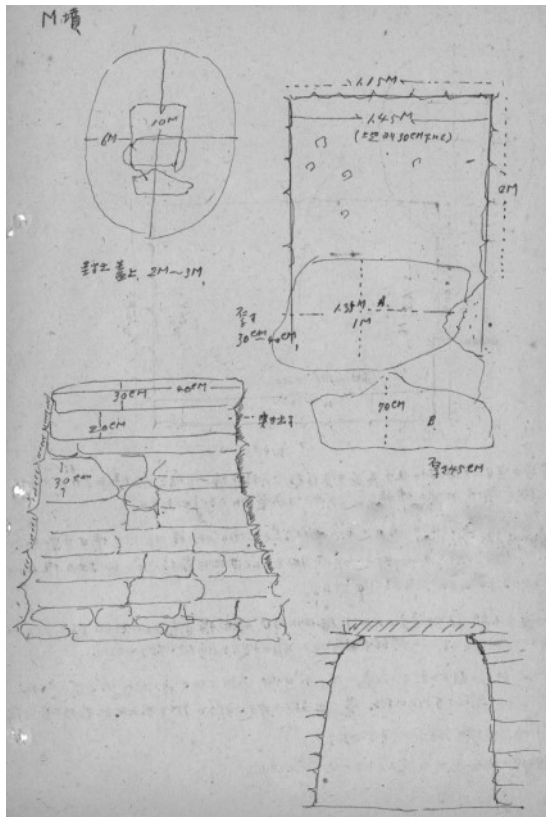 M墳
10M
6M
봉토는 蓋上, 2M~3M,
1.15M
1.45M
2M
1.38M A
1M
두께
30CM~40CM,
70CM
B
두께45CM
30CM 40CM
20CM
30CM